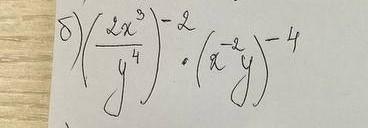 б) (2x³/y⁴)⁻² · (x⁻²y)⁻⁴